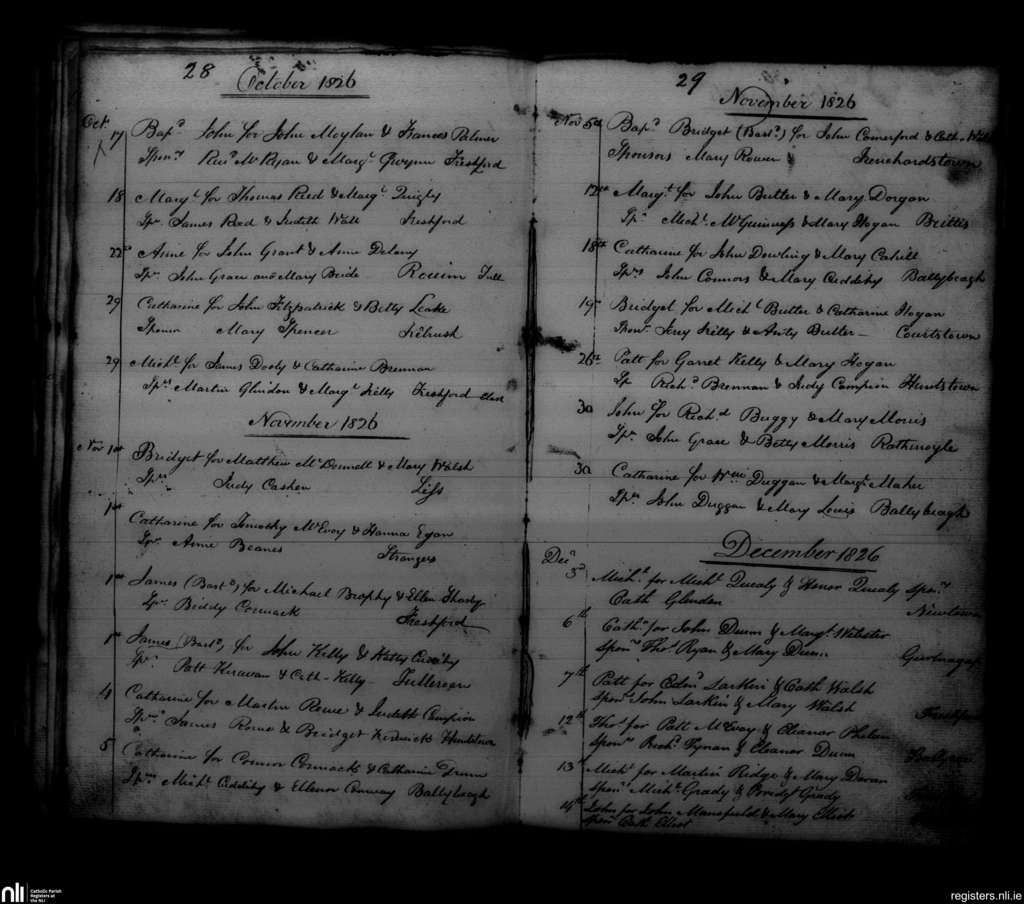 28
October 1826
Oct. 17 Bapd. John for John Meylan & Frances Palmer
Sponrs Revd. Mr Ryan & Margt. Gwynn Freshford
18 Margt. for Thomas Reed & Margt. Quigly
Spr. James Reed & Judith Wall Freshford
22nd Anne for John Grant & Anne Delany
Spr. John Grace and Mary Bride
29 Catharine for John Fitzpatrick & Betty Leake
Sponsr Mary Spencer Kilrush
29 Michl. for James Dooly & Catharine Brennan
Sprs Martin Glendon & Margt. Kelly Freshford
November 1826
Nov 1st Bridget for Matthew McDonnell & Mary Walsh
Sprs Judy Cashen Liss
1st Catharine for Timothy McEvoy & Hanna Egan
Spr. Anne Beanes Strangers
1st James (Bastd.) for Michael Brophy & Ellen
Spr. Biddy Cormack Freshford
1st James (Bastd.) for John Kelly & Katty
Spr. Patt Kiravan & Cath. Kelly Tulleroan
4 Catharine for Martin Rowe & Judith Campion
Sprs James Rowe & Bridget Huntstown
5 Catharine for Connor Cormack & Catharine
Sprs Michl. Cuddihy & Ellenor Conway Ballybeagh
29
November 1826
Nov 5th Bapd. Bridget (Bastd.) for John Comerford & Cath.
Sponsors Mary Rowen &
12th Margt. for John Butler & Mary Dorgan
Sprs Michl. McGuinness & Mary Hogan Brittis
18th Catharine for John Dowling & Mary Cahill
Sprs John Connors & Mary Cuddihy Ballybeagh
19th Bridget for Michl. Butler & Catharine Hogan
Sponr. Jerry Kelly & Anty Butler Courtstown
26th Patt for Garret Kelly & Mary Hogan
Sp Richd. Brennan & Judy Campion Huntstown
30 John for Richd. Buggy & Mary Morris
Spr. John Grace & Betty Morris Rathmoyle
30 Catharine for Wm. Duggan & Margt. Maher
Sprs John Duggan & Mary Louis Ballybeagh
December 1826
Decr 3d Michl. for Michl. Quealy & Honor Quealy Sponrs
Cath Glendon Newtown
6th Cathn. for John Dunn & Margt. Webster
Sponrs Thos. Ryan & Mary Dunn
7th Patt for Edmd. Larkin & Cath Walsh
Sponr John Larkin & Mary Walsh
12th Thos. for Patt McEvoy & Eleanor Phelan
Sponrs Richd. Tynan & Eleanor Dunn
13th Michl. for Martin Ridge & Mary Doran
Sponrs Michl. Grady & Bridgt Grady
14th John for John Mansfield & Mary Elliot
Sponr Cath Elliot
nli
Catholic Parish
Registers at
the NLI
registers.nli.ie